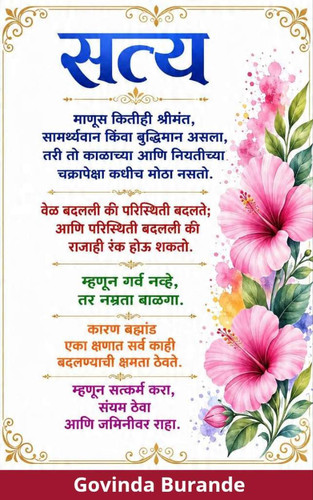 सत्य
माणूस कितीही श्रीमंत,
सामर्थ्यवान किंवा बुद्धिमान असला,
तरी तो काळाच्या आणि नियतीच्या
चक्रापेक्षा कधीच मोठा नसतो.
वेळ बदलली की परिस्थिती बदलते;
आणि परिस्थिती बदलली की
राजाही रंक होऊ शकतो.
म्हणून गर्व नव्हे,
तर नम्रता बाळगा.
कारण बह्मांड
एका क्षणात सर्व काही
बदलण्याची क्षमता ठेवते.
म्हणून सत्कर्म करा,
संयम ठेवा
आणि जमिनीवर राहा.
Govinda Burande